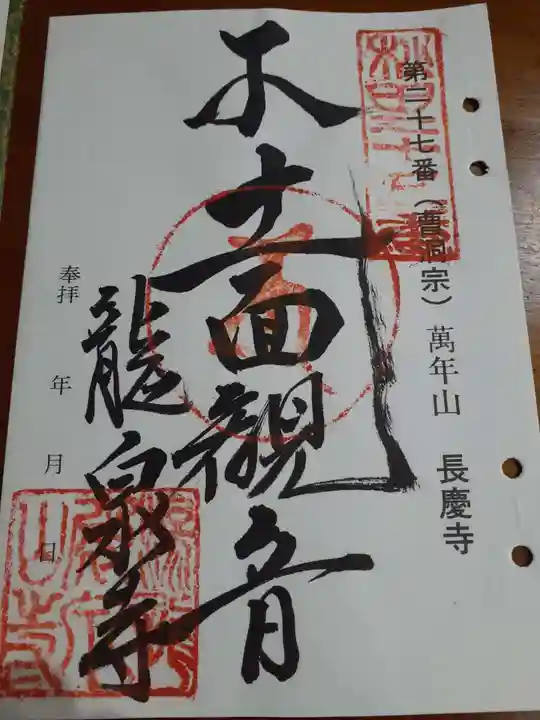 第二十七番（曹洞宗）萬年山 長慶寺
十一面觀音
龍泉寺
奉拝 年 月 日